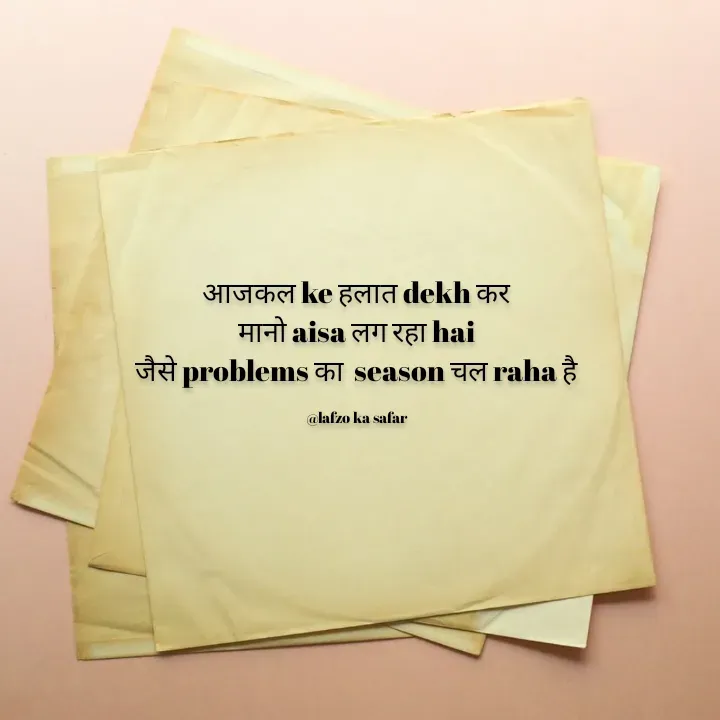 आजकल ke हलात dekh कर
मानो aisa लग रहा hai
जैसे problems का season चल raha है
@lafzo ka safar